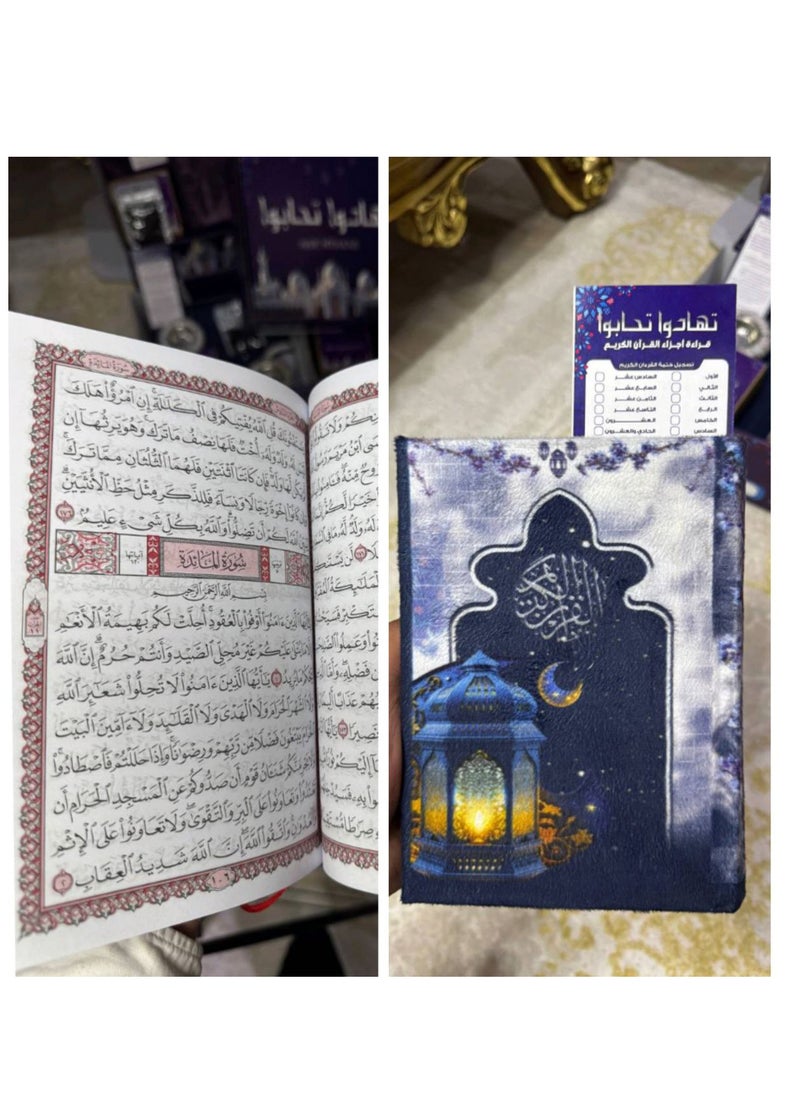 تهادوا تحابوا
سُورَةُ المَائِدَةِ
يَسْتَفْتُونَكَ قُلِ اللَّهُ يُفْتِيكُمْ فِي الْكَلَالَةِ إِنِ امْرُؤٌا هَلَكَ
لَيْسَ لَهُ وَلَدٌ وَلَهُ أُخْتٌ فَلَهَا نِصْفُ مَا تَرَكَ وَهُوَ يَرِثُهَا إِن
لَّمْ يَكُن لَّهَا وَلَدٌ فَإِن كَانَتَا اثْنَتَيْنِ فَلَهُمَا الثُّلُثَانِ مِمَّا تَرَكَ
وَإِن كَانُوا إِخْوَةً رِّجَالًا وَنِسَاءً فَلِلذَّكَرِ مِثْلُ حَظِّ الْأُنثَيَيْنِ
يُبَيِّنُ اللَّهُ لَكُمْ أَن تَضِلُّوا وَاللَّهُ بِكُلِّ شَيْءٍ عَلِيمٌ ١٧٦
سُورَةُ المَائِدَةِ
بِسْمِ اللَّهِ الرَّحْمَٰنِ الرَّحِيمِ
يَا أَيُّهَا الَّذِينَ آمَنُوا أَوْفُوا بِالْعُقُودِ أُحِلَّتْ لَكُم بَهِيمَةُ الْأَنْعَامِ
إِلَّا مَا يُتْلَىٰ عَلَيْكُمْ غَيْرَ مُحِلِّي الصَّيْدِ وَأَنتُمْ حُرُمٌ إِنَّ اللَّهَ
يَحْكُمُ مَا يُرِيدُ ١ يَا أَيُّهَا الَّذِينَ آمَنُوا لَا تُحِلُّوا شَعَائِرَ اللَّهِ
وَلَا الشَّهْرَ الْحَرَامَ وَلَا الْهَدْيَ وَلَا الْقَلَائِدَ وَلَا آمِّينَ الْبَيْتَ
الْحَرَامَ يَبْتَغُونَ فَضْلًا مِّن رَّبِّهِمْ وَرِضْوَانًا وَإِذَا حَلَلْتُمْ فَاصْطَادُوا
وَلَا يَجْرِمَنَّكُمْ شَنَآنُ قَوْمٍ أَن صَدُّوكُمْ عَنِ الْمَسْجِدِ الْحَرَامِ أَن
تَعْتَدُوا وَتَعَاوَنُوا عَلَى الْبِرِّ وَالتَّقْوَىٰ وَلَا تَعَاوَنُوا عَلَى الْإِثْمِ
وَالْعُدْوَانِ وَاتَّقُوا اللَّهَ إِنَّ اللَّهَ شَدِيدُ الْعِقَابِ ٢
١٠٦
تهادوا تحابوا
قراءة أجزاء القرآن الكريم
تسجيل ختمة القرءان الكريم
الأول السادس عشر
الثاني السابع عشر
الثالث الثامن عشر
الرابع التاسع عشر
الخامس العشرون
السادس الحادي والعشرون
القرآن الكريم